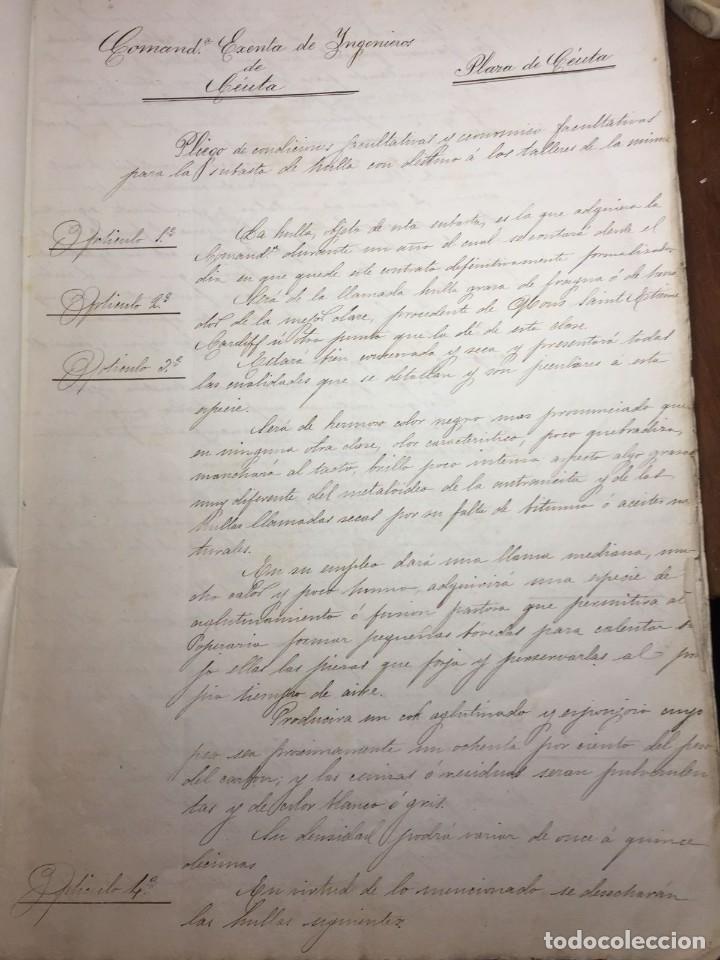 Comand.ª Exenta de Yngenieros
de
Céuta
Plaza de Céuta
Pliego de condiciones facultativas y economico facultativas
para la subasta de hulla con destino á los talleres de la misma
Articulo 1.º
La hulla, objeto de esta subasta, es la que adquiera la
Comand.ª durante un año el cual se contará desde el
dia en que quede este contrato definitivamente formalizado
Articulo 2.º
Será de la llamada hulla grasa de fragua ó de
de la mejor clase, procedente de Mons Saint Etienne
Cardiff ú otro punto que la dé de esta clase.
Articulo 3.º
Estará bien y seca y presentará todas
las cualidades que se detallan y son peculiares á esta
especie.
Será de hermoso color negro mas pronunciado que
en ninguna otra clase, olor caracteristico, poco quebradiza,
manchará al tacto, brillo poco intenso aspecto algo graso
muy diferente del metaloideo de la antracita y de las
hullas llamadas secas por su falta de bitumen ó aceites na-
turales.
En su empleo dará una llama mediana, mu-
cho calor y poco humo, adquirirá una especie de
aglutinamiento ó fusion pastosa que permitirá al
operario formar pequeñas bovedas para calentar ba-
jo ellas las piezas que forja y preservarlas al pro-
pio tiempo de aire.
Producira un cok aglutinado y esponjoso cuyo
peso sea proximamente un ochenta por ciento del peso
del carbon; y las cenizas ó residuos seran pulverulen-
tas y de color blanco ó gris.
Su densidad podrá variar de once á quince
decimas
Articulo 4.º
En virtud de lo mencionado se desecharán
las hullas siguientes
todocoleccion